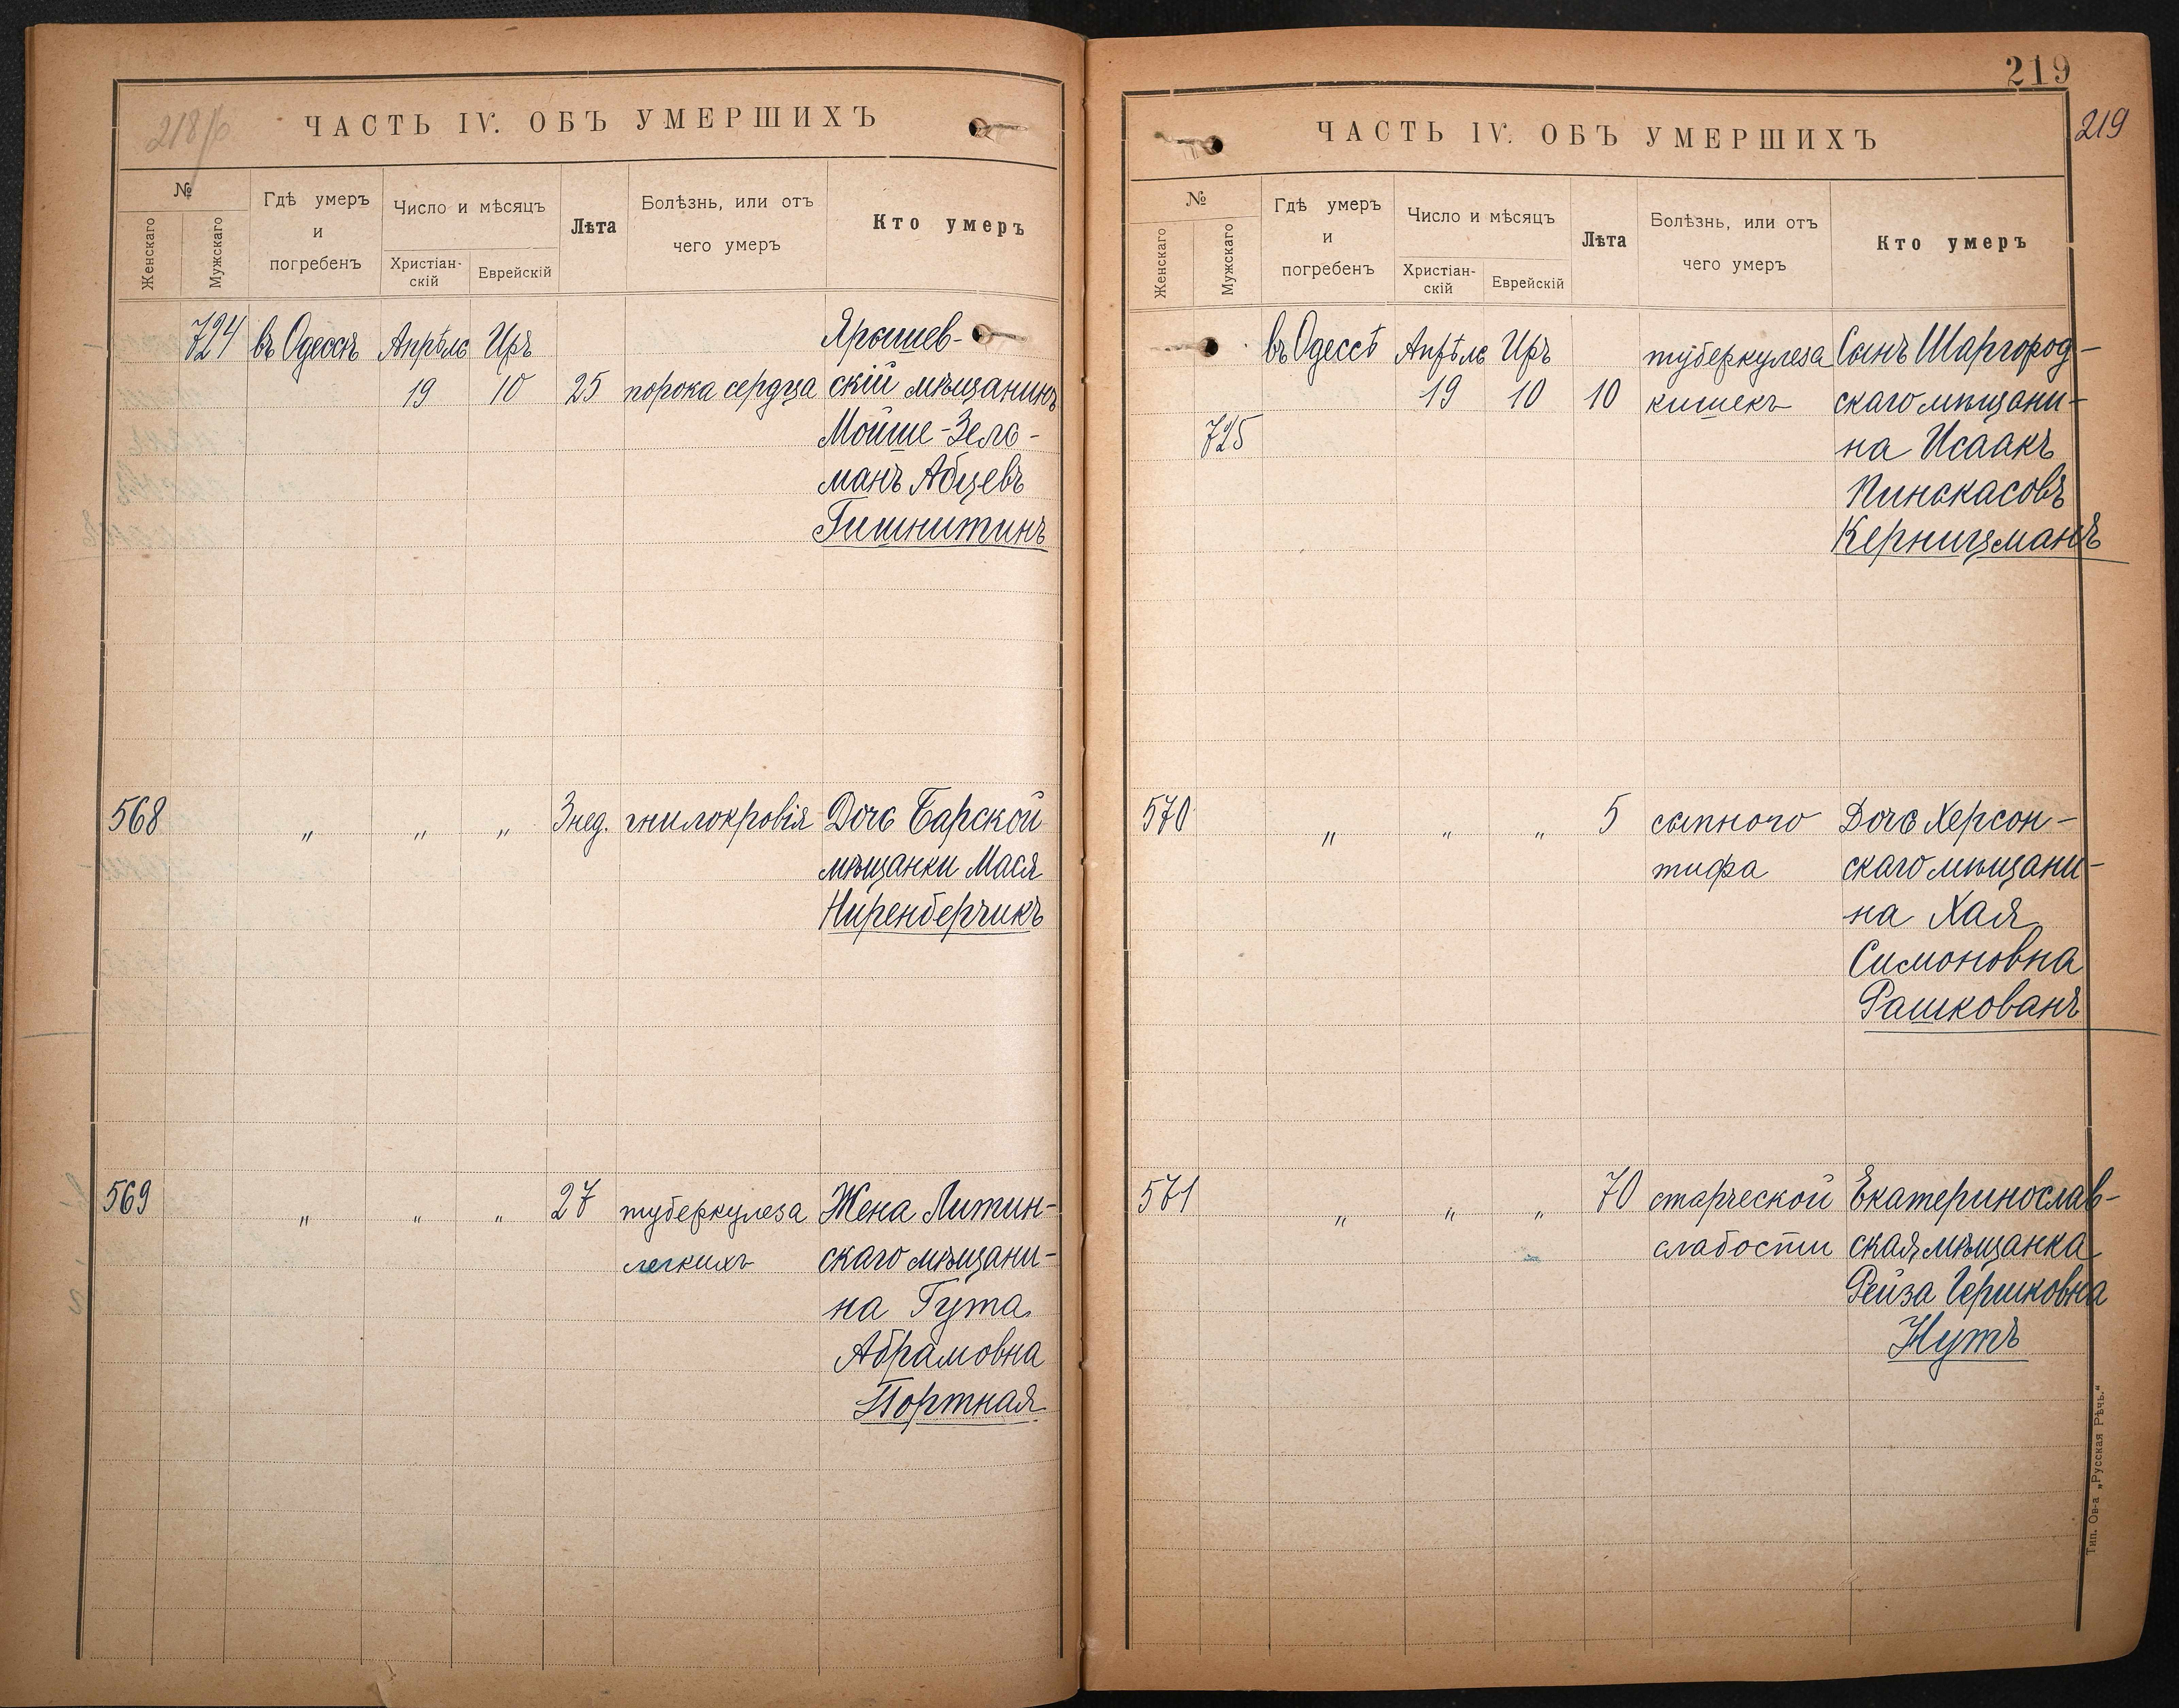 218/об
ЧАСТЬ IV. ОБЪ УМЕРШИХЪ
№
Женскаго
Мужскаго
Гдѣ умеръ
и
погребенъ
Число и мѣсяцъ
Христіан-
скій
Еврейскій
Лѣта
Болѣзнь, или отъ
чего умеръ
Кто умеръ
724 въ Одессѣ Апрѣль Иръ Ярышев-
19 10 25 порока сердца скій мѣщанинъ
Мойше-Зель-
манъ Абцевъ
Гишнитинъ
568 " " " 3 нед. гнилокровія Дочь Барской
мѣщанки Мася
Ниренберчикъ
569 " " " 27 туберкулеза Жена Литин-
легкихъ скаго мѣщани-
на Гута
Абрамовна
Портная
219
219
ЧАСТЬ IV. ОБЪ УМЕРШИХЪ
№
Женскаго
Мужскаго
Гдѣ умеръ
и
погребенъ
Число и мѣсяцъ
Христіан-
скій
Еврейскій
Лѣта
Болѣзнь, или отъ
чего умеръ
Кто умеръ
въ Одессѣ Апрѣль Иръ туберкулеза Сынъ Шаргород-
19 10 10 кишекъ скаго мѣщани-
725 на Исаакъ
Пинскасовъ
Керницманъ
570 " " " 5 сыпного Дочь Херсон-
тифа скаго мѣщани-
на Хая
Симоновна
Рашкованъ
571 " " " 70 старческой Екатеринослав-
слабости ская мѣщанка
Рейза Гершковна
Нутъ
Тип. Ов-а „Русская Рѣчь.“